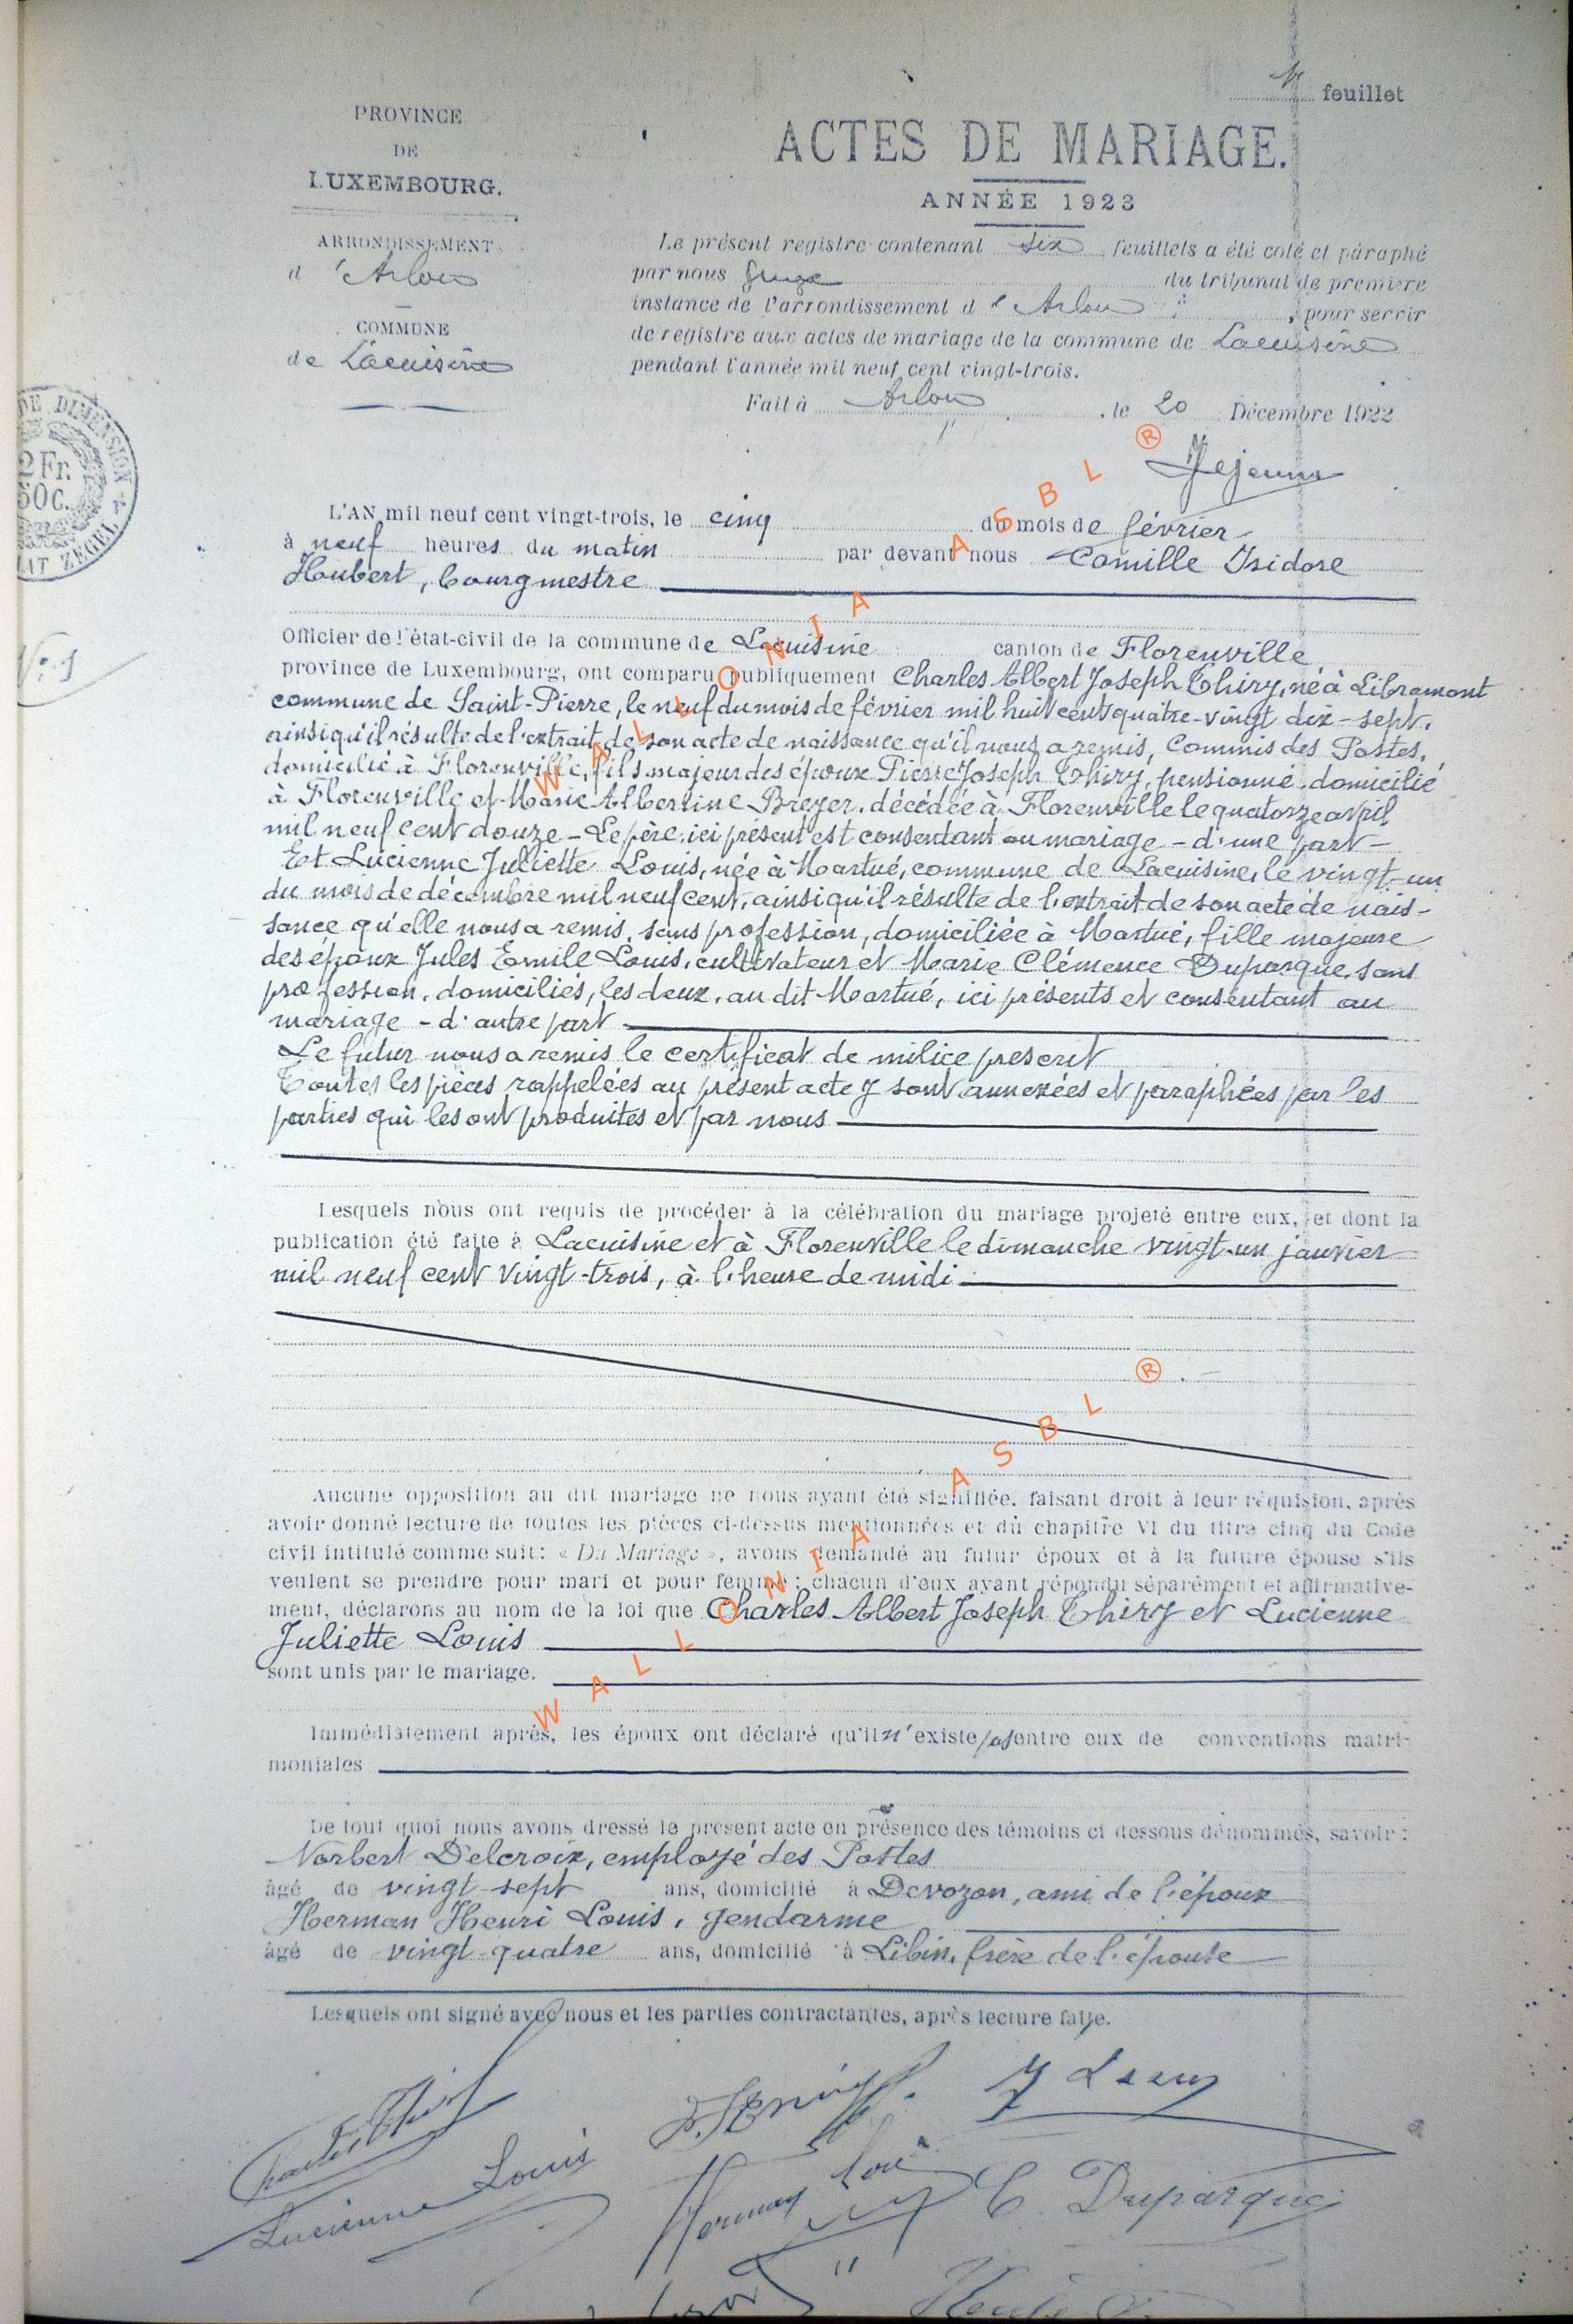 1r feuillet
PROVINCE
DE
LUXEMBOURG.
ARRONDISSEMENT
d'Arlon
COMMUNE
de Lacuisine
ACTES DE MARIAGE.
ANNÉE 1923
Le présent registre contenant six feuillets a été coté et paraphé
par nous Juge du tribunal de première
instance de l'arrondissement d'Arlon, pour servir
de registre aux actes de mariage de la commune de Lacuisine
pendant l'année mil neuf cent vingt-trois.
Fait à Arlon, le 20 Décembre 1922
DE DIMENSION
2Fr.
50c.
ZEGEL
No 1
L'AN mil neuf cent vingt-trois, le cinq du mois de février
à neuf heures du matin par devant nous Camille Isidore
Houbert, bourgmestre
Officier de l'état-civil de la commune de Lacuisine canton de Florenville
province de Luxembourg, ont comparu publiquement Charles Albert Joseph Thiry, né à Libramont
commune de Saint-Pierre, le neuf du mois de février mil huit cent quatre-vingt dix-sept,
ainsi qu'il résulte de l'extrait de son acte de naissance qu'il nous a remis, Commis des Postes,
domicilié à Florenville, fils majeur des époux Pierre Joseph Thiry, pensionné, domicilié
à Florenville et Marie Albertine Breyer, décédée à Florenville le quatorze avril
mil neuf cent douze - Le père, ici présent est consentant au mariage - d'une part -
Et Lucienne Juliette Louis, née à Martué, commune de Lacuisine, le vingt-un
du mois de décembre mil neuf cent, ainsi qu'il résulte de l'extrait de son acte de nais-
sance qu'elle nous a remis, sans profession, domiciliée à Martué, fille majeure
des époux Jules Emile Louis, cultivateur et Marie Clémence Duparque, sans
profession, domiciliés, les deux, au dit Martué, ici présents et consentant au
mariage - d'autre part
Le futur nous a remis le certificat de milice prescrit
Toutes les pièces rappelées au présent acte y sont annexées et paraphées par les
parties qui les ont produites et par nous
Lesquels nous ont requis de procéder à la célébration du mariage projeté entre eux, et dont la
publication été faite à Lacuisine et à Florenville le dimanche vingt-un janvier
mil neuf cent vingt-trois, à l'heure de midi
Aucune opposition au dit mariage ne nous ayant été signifiée, faisant droit à leur réquision, après
avoir donné lecture de toutes les pièces ci-dessus mentionnées et du chapitre VI du titre cinq du Code
civil intitulé comme suit: « Du Mariage », avons demandé au futur époux et à la future épouse s'ils
veulent se prendre pour mari et pour femme; chacun d'eux ayant répondu séparément et affirmative-
ment, déclarons au nom de la loi que Charles Albert Joseph Thiry et Lucienne
Juliette Louis
sont unis par le mariage.
Immédiatement après, les époux ont déclaré qu'il n'existe pas entre eux de conventions matri-
moniales
De tout quoi nous avons dressé le présent acte en présence des témoins ci dessous dénommés, savoir:
Norbert Delcroix, employé des Postes
âgé de vingt-sept ans, domicilié à Devozon, ami de l'époux
Herman Henri Louis, gendarme
âgé de vingt-quatre ans, domicilié à Libin, frère de l'épouse
Lesquels ont signé avec nous et les parties contractantes, après lecture faite.
Charles Thiry
Lucienne Louis
Herman Louis
C Duparque
WALLONIA ASBL ®
WALLONIA ASBL ®